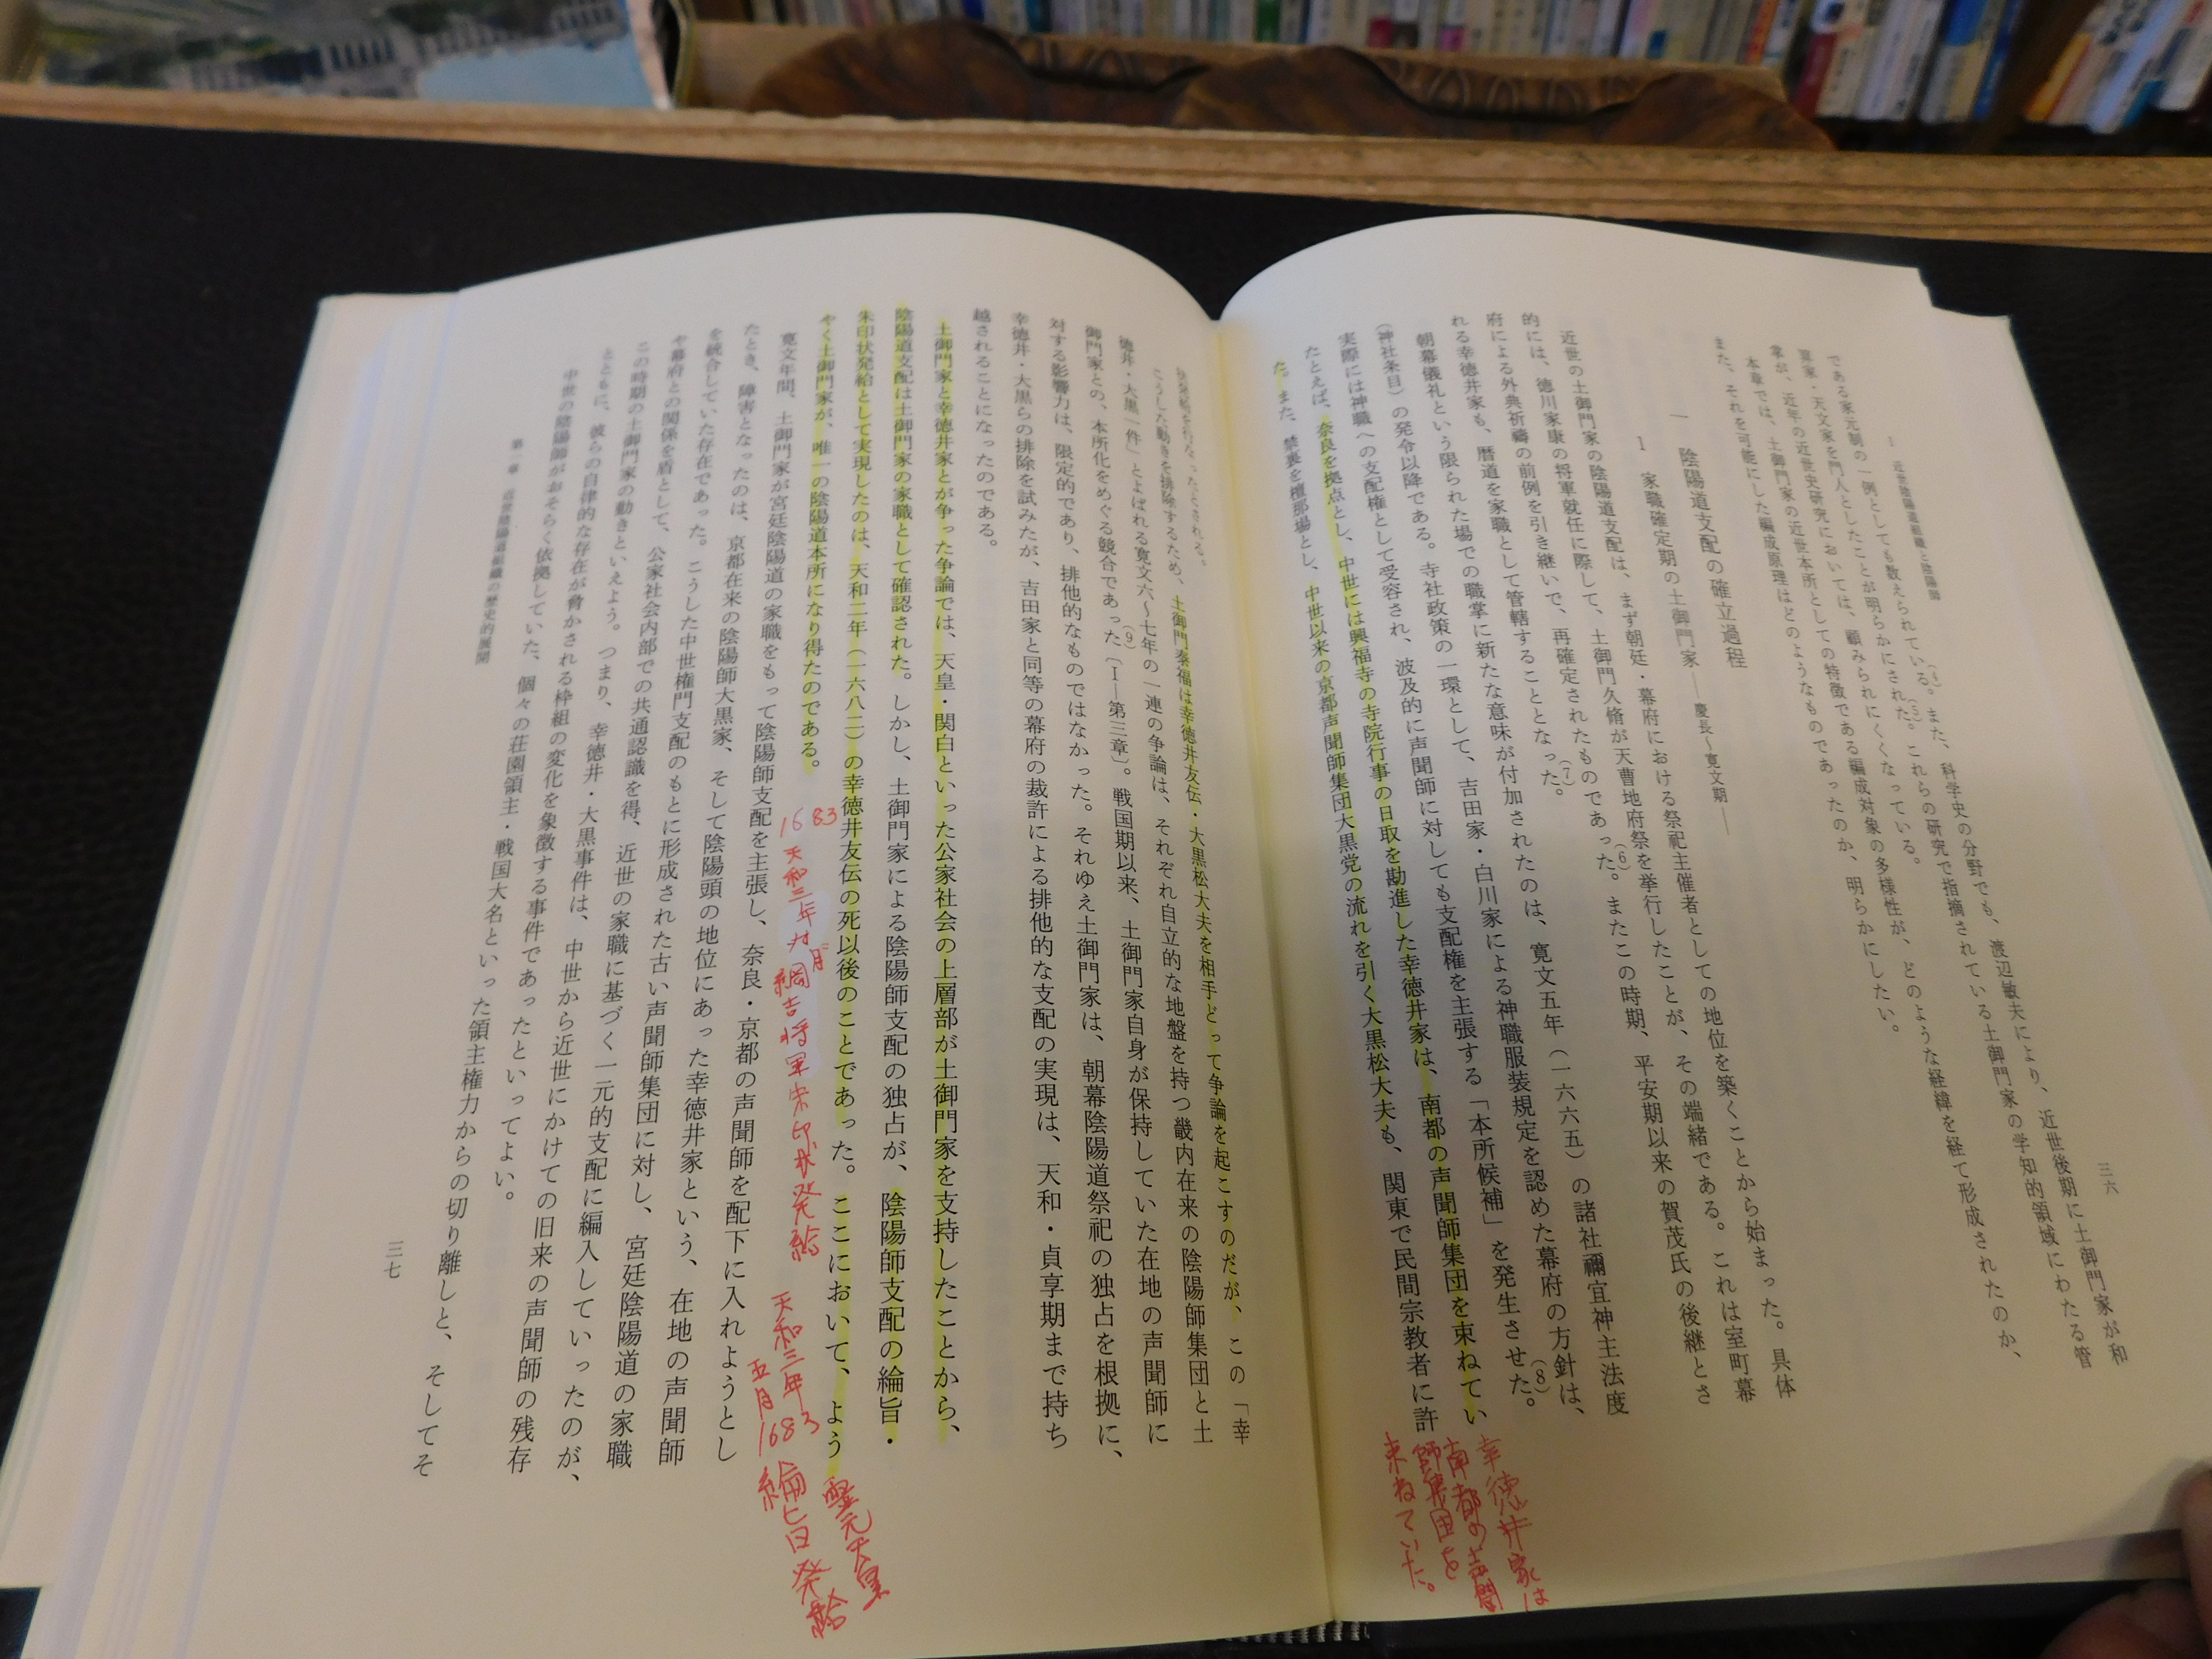 I 近世陰陽道組織と陰陽師
三六
である家元制の一例としても数えられている。(4)また、科学史の分野でも、渡辺敏夫により、近世後期に土御門家が和
算家・天文家を門人としたことが明らかにされた。(5)これらの研究で指摘されている土御門家の学知的領域にわたる管
掌が、近年の近世史研究においては、顧みられにくくなっている。
本章では、土御門家の近世本所としての特徴である編成対象の多様性が、どのような経緯を経て形成されたのか、
また、それを可能にした編成原理はどのようなものであったのか、明らかにしたい。
一 陰陽道支配の確立過程
1 家職確定期の土御門家――慶長～寛文期――
近世の土御門家の陰陽道支配は、まず朝廷・幕府における祭祀主催者としての地位を築くことから始まった。具体
的には、徳川家康の将軍就任に際して、土御門久脩が天曹地府祭を挙行したことが、その端緒である。これは室町幕
府による外典祈禱の前例を引き継いで、再確定されたものであった。(6)またこの時期、平安期以来の賀茂氏の後継とさ
れる幸徳井家も、暦道を家職として管轄することとなった。(7)
朝幕儀礼という限られた場での職掌に新たな意味が付加されたのは、寛文五年(一六六五)の諸社禰宜神主法度
(神社条目)の発令以降である。寺社政策の一環として、吉田家・白川家による神職服装規定を認めた幕府の方針は、
実際には神職への支配権として受容され、波及的に声聞師に対しても支配権を主張する「本所候補」を発生させた。(8)
たとえば、奈良を拠点とし、中世には興福寺の寺院行事の日取を勘進した幸徳井家は、南都の声聞師集団を束ねてい
た。また、禁裏を檀那場とし、中世以来の京都声聞師集団大黒党の流れを引く大黒松大夫も、関東で民間宗教者に許
幸徳井家は
南都の声聞
師集団を
束ねていた。
こうした動きを排除するため、土御門泰福は幸徳井友伝・大黒松大夫を相手どって争論を起こすのだが、この「幸
徳井・大黒一件」とよばれる寛文六～七年の一連の争論は、それぞれ自立的な地盤を持つ畿内在来の陰陽師集団と土
御門家との、本所化をめぐる競合であった(9)(Ⅰ―第三章)。戦国期以来、土御門家自身が保持していた在地の声聞師に
対する影響力は、限定的であり、排他的なものではなかった。それゆえ土御門家は、朝幕陰陽道祭祀の独占を根拠に、
幸徳井・大黒らの排除を試みたが、吉田家と同等の幕府の裁許による排他的な支配の実現は、天和・貞享期まで持ち
越されることになったのである。
土御門家と幸徳井家とが争った争論では、天皇・関白といった公家社会の上層部が土御門家を支持したことから、
陰陽道支配は土御門家の家職として確認された。しかし、土御門家による陰陽師支配の独占が、陰陽師支配の綸旨・
朱印状発給として実現したのは、天和二年(一六八二)の幸徳井友伝の死以後のことであった。ここにおいて、よう
やく土御門家が、唯一の陰陽道本所になり得たのである。
1683
天和三年九月
綱吉将軍朱印状発給
天和三年
五月1683
綸旨発給
霊元天皇
寛文年間、土御門家が宮廷陰陽道の家職をもって陰陽師支配を主張し、奈良・京都の声聞師を配下に入れようとし
たとき、障害となったのは、京都在来の陰陽師大黒家、そして陰陽頭の地位にあった幸徳井家という、在地の声聞師
を統合していた存在であった。こうした中世権門支配のもとに形成された古い声聞師集団に対し、宮廷陰陽道の家職
や幕府との関係を盾として、公家社会内部での共通認識を得、近世の家職に基づく一元的支配に編入していったのが、
この時期の土御門家の動きといえよう。つまり、幸徳井・大黒事件は、中世から近世にかけての旧来の声聞師の残存
とともに、彼らの自律的な存在が脅かされる枠組の変化を象徴する事件であったといってよい。
中世の陰陽師がおそらく依拠していた、個々の荘園領主・戦国大名といった領主権力からの切り離しと、そしてそ
第一章 近世陰陽道組織の歴史的展開
三七